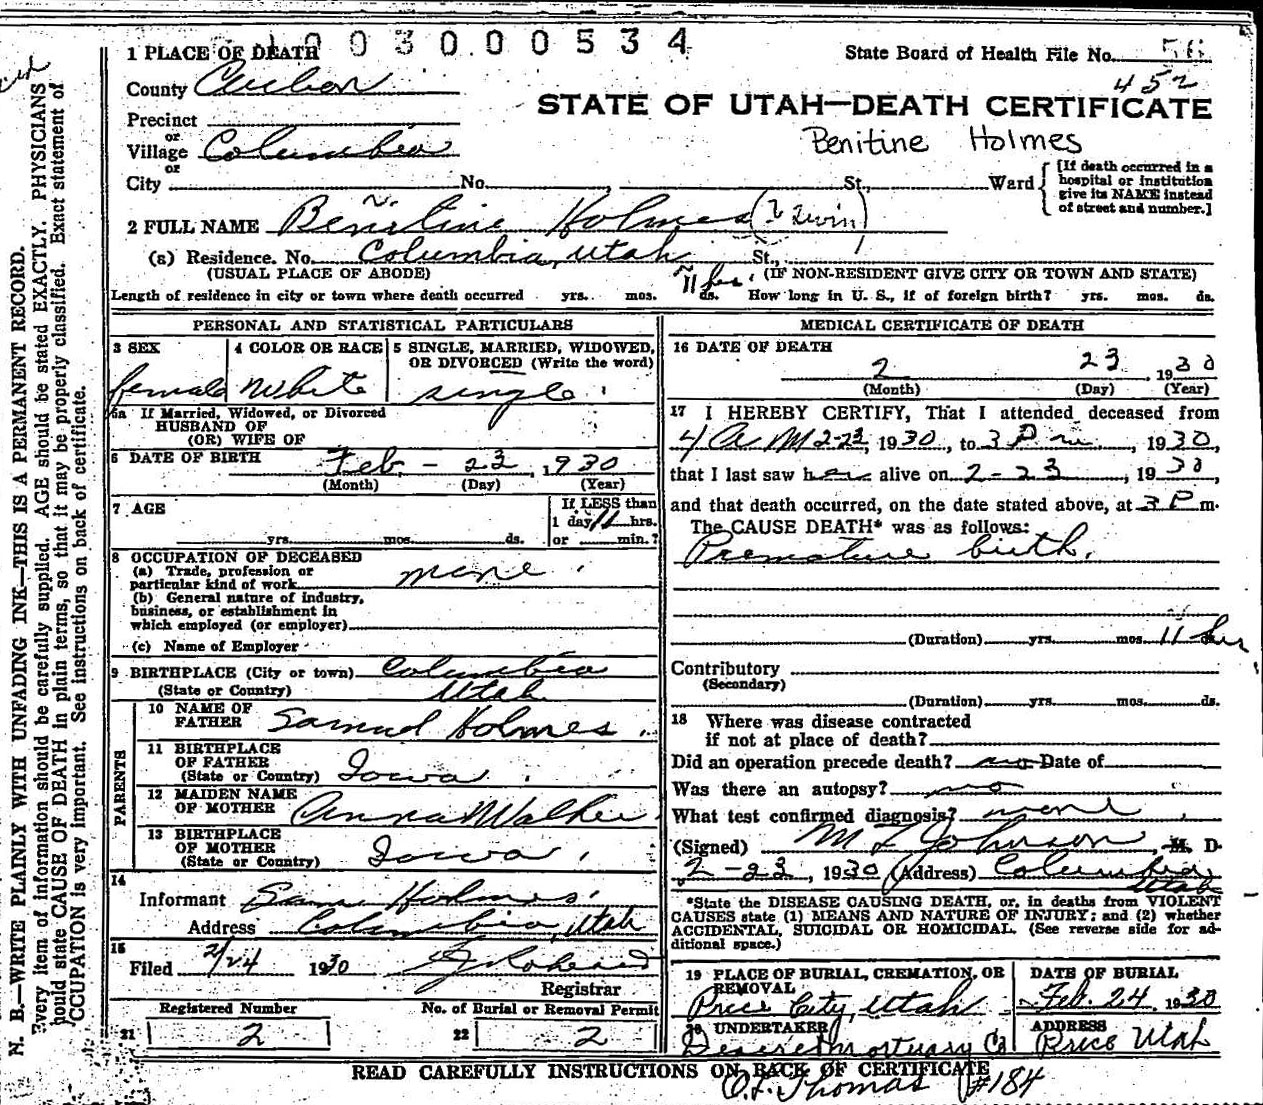 1 PLACE OF DEATH 003000534
State Board of Health File No. 56
452
County Carbon
STATE OF UTAH—DEATH CERTIFICATE
Precinct
or
Village Columbia
Benitine Holmes
or
City No. , St., Ward
[If death occurred in a
hospital or institution
give its NAME instead
of street and number.]
2 FULL NAME Benitine Holmes (Twin)
(a) Residence. No. Columbia, Utah St.,
(USUAL PLACE OF ABODE) (IF NON-RESIDENT GIVE CITY OR TOWN AND STATE)
Length of residence in city or town where death occurred yrs. mos. 11 hrs. ds. How long in U. S., if of foreign birth? yrs. mos. ds.
PERSONAL AND STATISTICAL PARTICULARS
3 SEX 4 COLOR OR RACE 5 SINGLE, MARRIED, WIDOWED,
OR DIVORCED (Write the word)
female White single
5a If Married, Widowed, or Divorced
HUSBAND OF
(OR) WIFE OF
6 DATE OF BIRTH Feb - 23, 1930
(Month) (Day) (Year)
7 AGE If LESS than
1 day 11 hrs.
yrs. mos. ds. or min.?
8 OCCUPATION OF DECEASED
(a) Trade, profession or
particular kind of work none
(b) General nature of industry,
business, or establishment in
which employed (or employer)
(c) Name of Employer
9 BIRTHPLACE (City or town) Columbia
(State or Country) Utah
PARENTS
10 NAME OF
FATHER Samuel Holmes
11 BIRTHPLACE
OF FATHER
(State or Country) Iowa
12 MAIDEN NAME
OF MOTHER Anna Walker
13 BIRTHPLACE
OF MOTHER
(State or Country) Iowa
14
Informant Sam Holmes
Address Columbia, Utah
15
Filed 2/24 1930
Registrar
Registered Number No. of Burial or Removal Permit
21 2 22 2
MEDICAL CERTIFICATE OF DEATH
16 DATE OF DEATH
2 23 1930
(Month) (Day) (Year)
17 I HEREBY CERTIFY, That I attended deceased from
4 A M 2-23, 1930, to 3 P m, 1930,
that I last saw her alive on 2-23, 1930
and that death occurred, on the date stated above, at 3 P m.
The CAUSE DEATH* was as follows:
Premature birth.
(Duration) yrs. mos. 11 hrs
Contributory
(Secondary)
(Duration) yrs. mos. ds.
18 Where was disease contracted
if not at place of death?
Did an operation precede death? no Date of
Was there an autopsy? no
What test confirmed diagnosis? none
(Signed) M T Johnson, M. D.
2-23, 1930 (Address) Columbia
Utah
*State the DISEASE CAUSING DEATH, or, in deaths from VIOLENT
CAUSES state (1) MEANS AND NATURE OF INJURY; and (2) whether
ACCIDENTAL, SUICIDAL OR HOMICIDAL. (See reverse side for ad-
ditional space.)
19 PLACE OF BURIAL, CREMATION, OR
REMOVAL
DATE OF BURIAL
Price City, Utah Feb. 24 1930
20 UNDERTAKER ADDRESS
Deseret Mortuary Co Price Utah
READ CAREFULLY INSTRUCTIONS ON BACK OF CERTIFICATE
O.F. Thomas #184
N. B.—WRITE PLAINLY WITH UNFADING INK—THIS IS A PERMANENT RECORD.
Every item of information should be carefully supplied. AGE should be stated EXACTLY. PHYSICIANS
should state CAUSE OF DEATH in plain terms, so that it may be properly classified. Exact statement of
OCCUPATION is very important. See instructions on back of certificate.